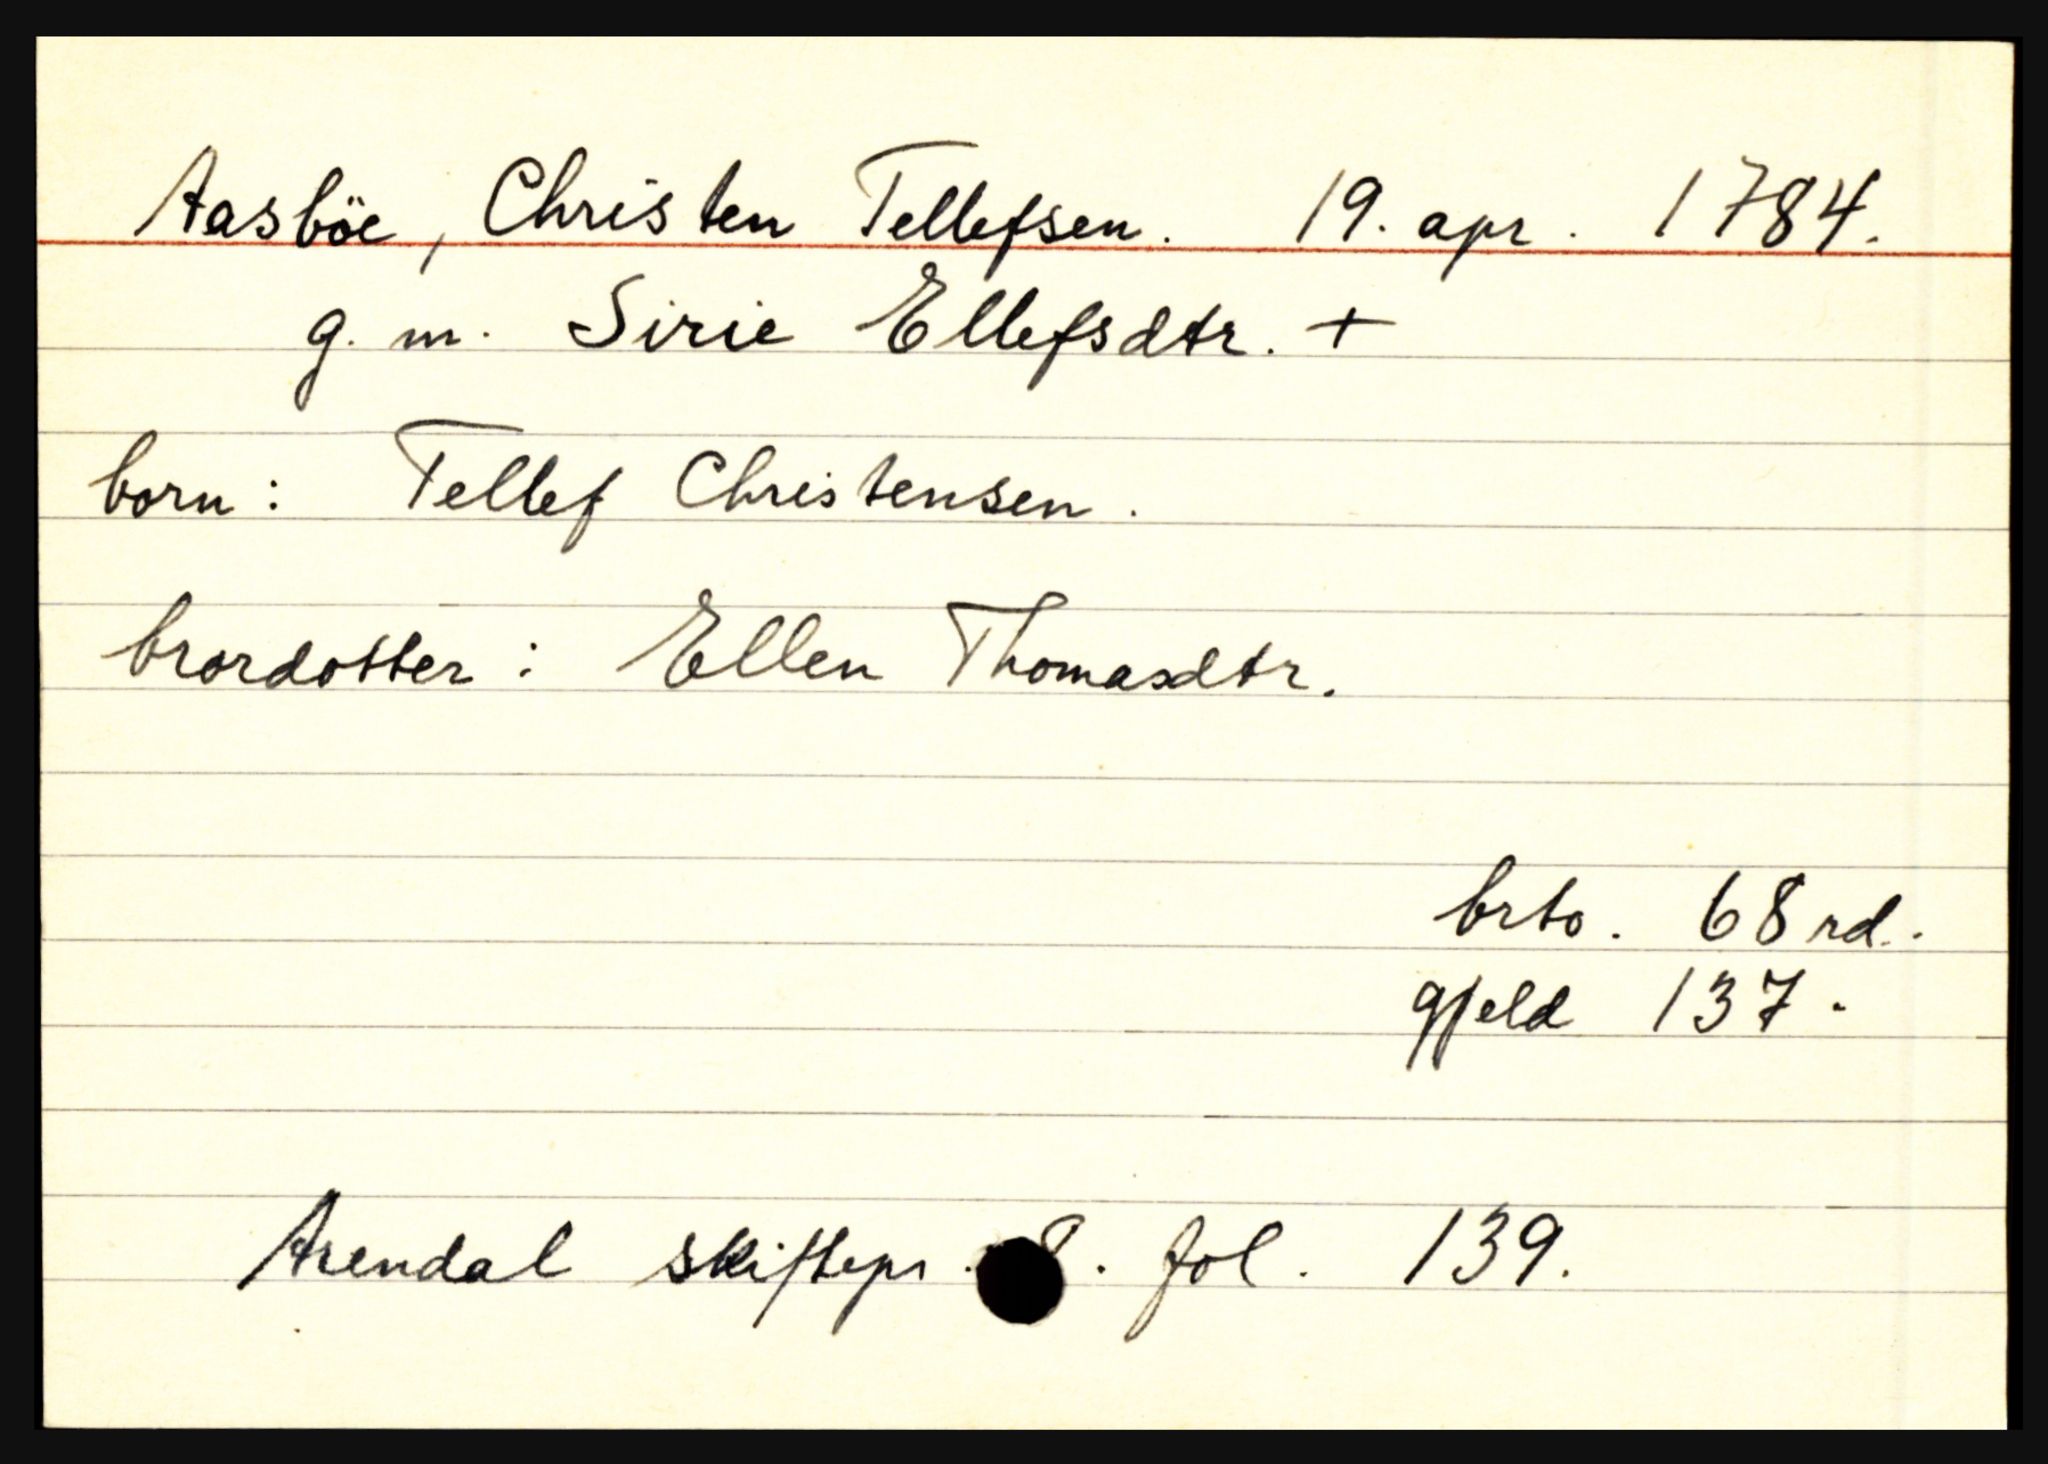 Aasböe, Christen Tellefsen. 19. apr. 1784.
g. m. Sirie Ellefsdtr. +
born: Tellef Christensen.
brordotter: Ellen Thomasdtr.
brto. 68 rd.
gjeld 137.
Arendal skiftepr. . fol. 139.